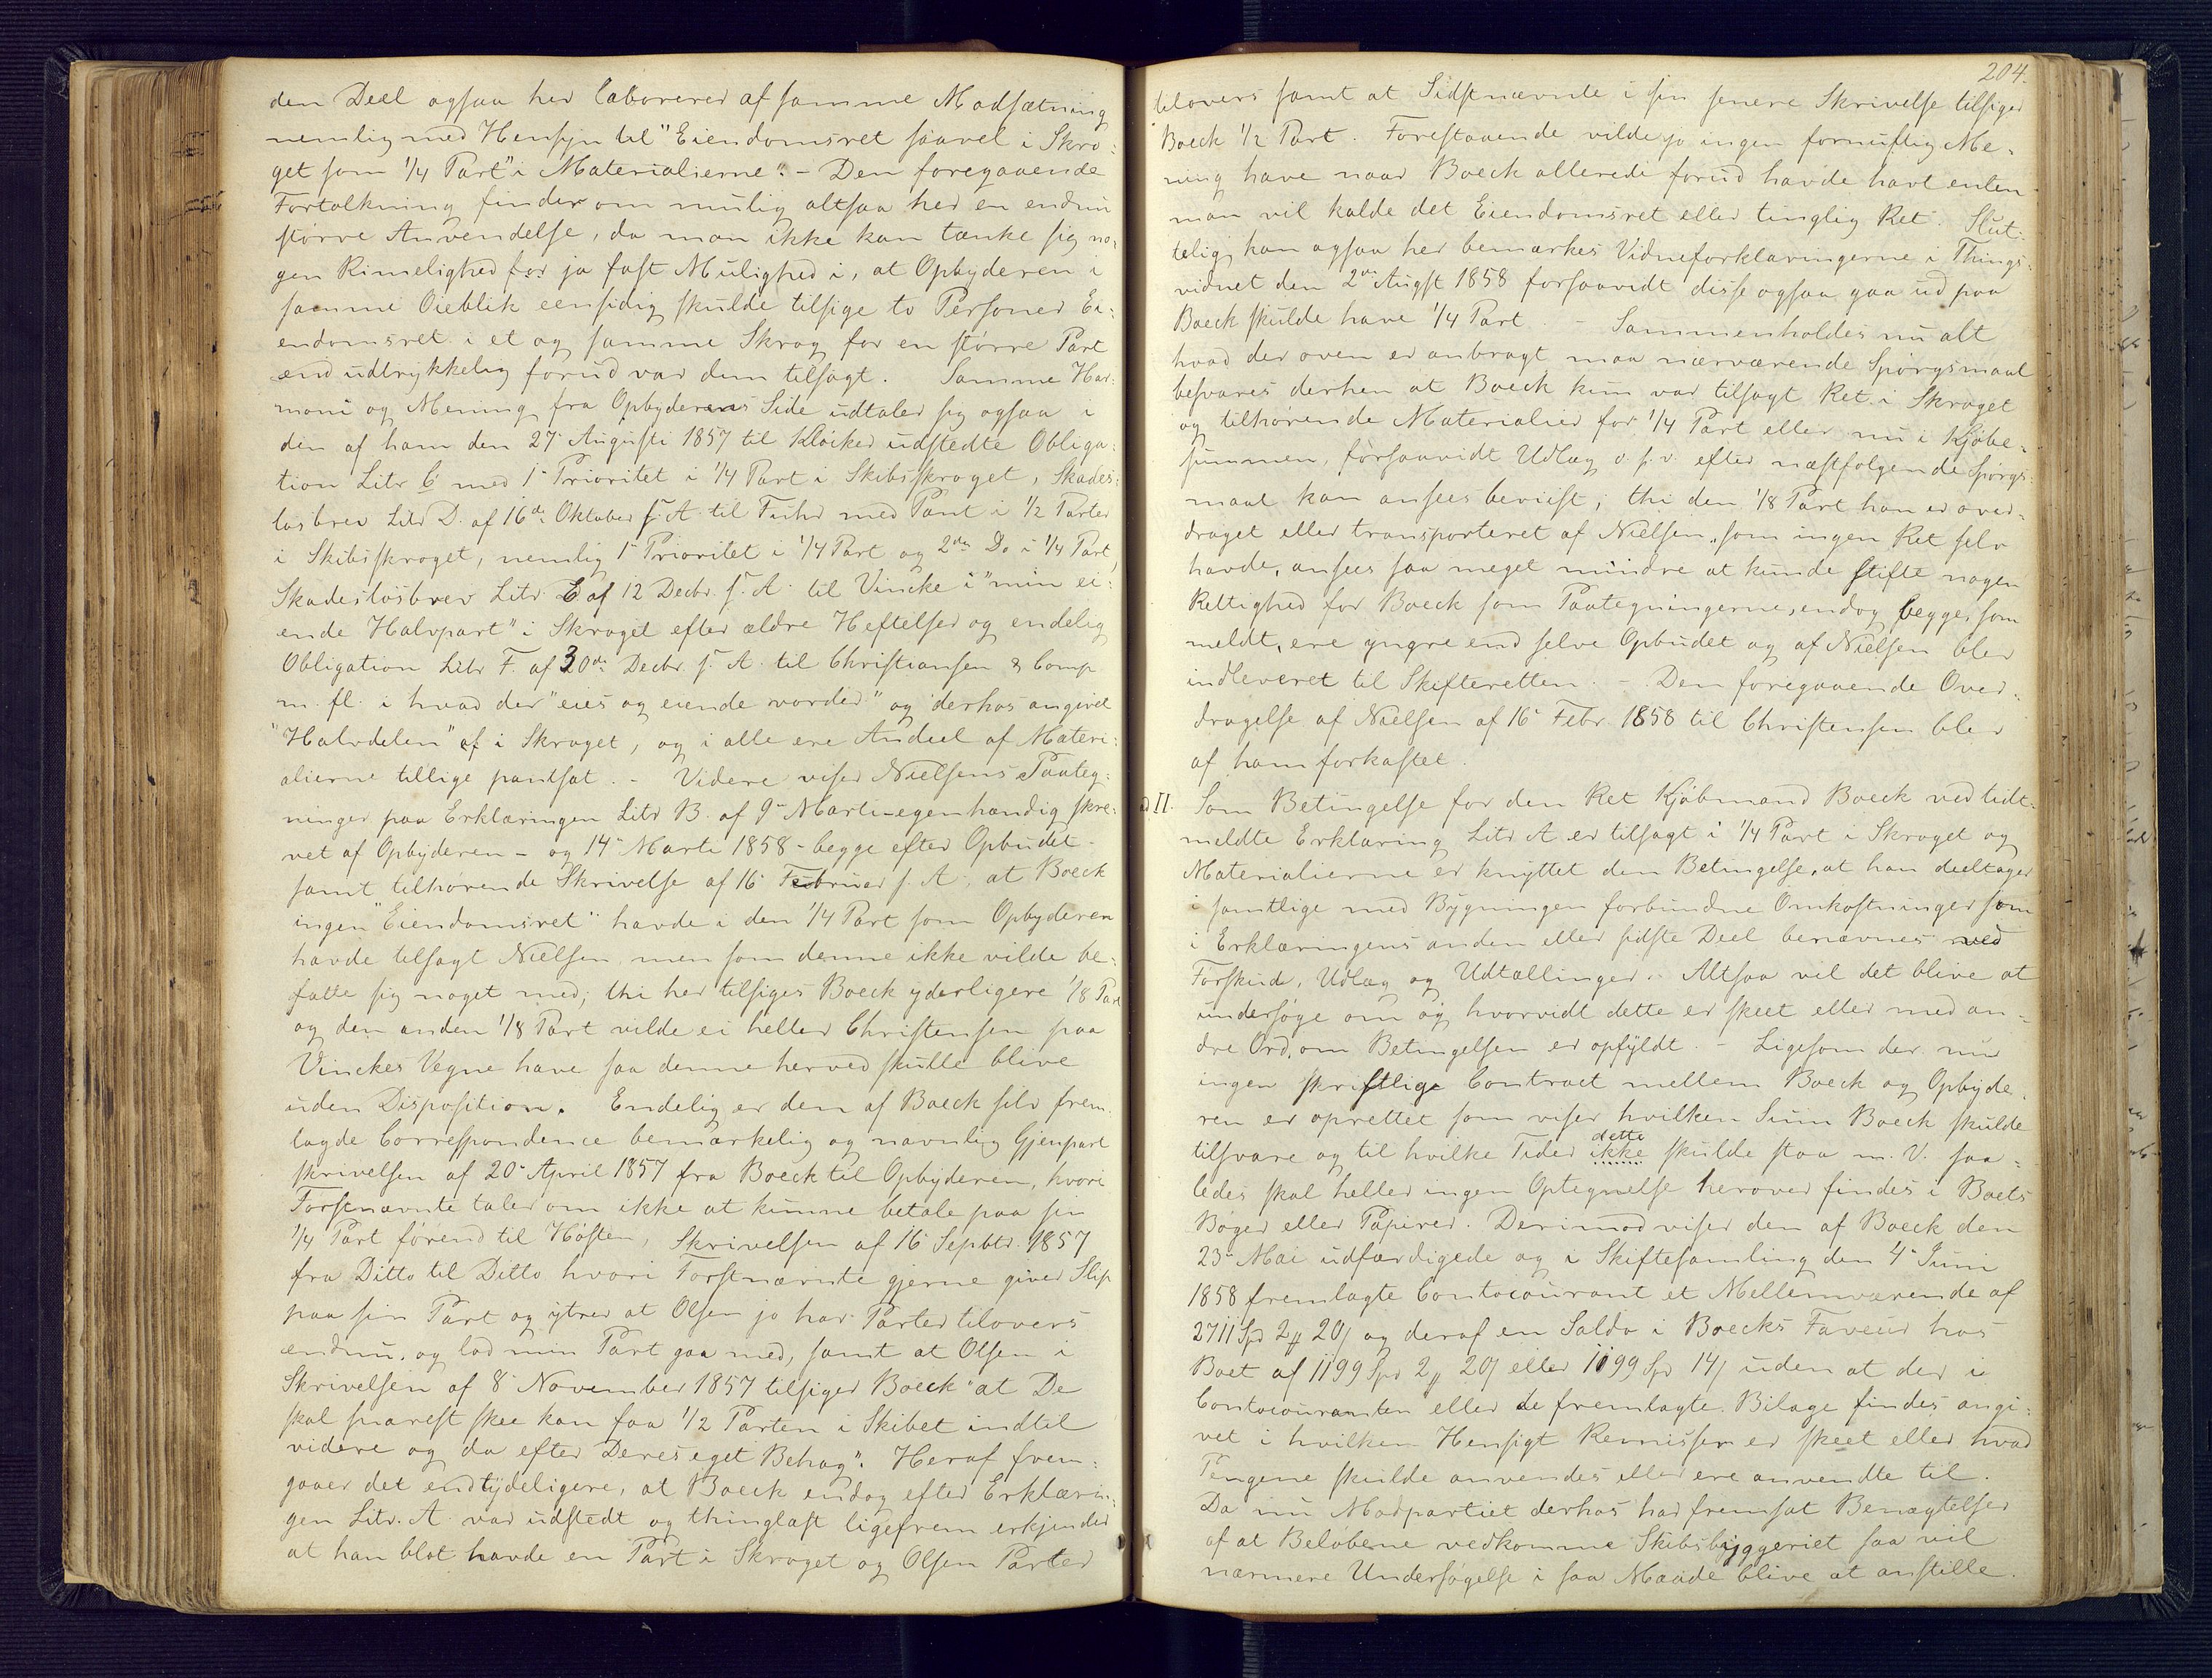 den Deel ogsaa her laborerer af samme Modsætning
nemlig med Hensyn til "Eiendomsret saavel i Skro-
get som 1/4 Part" i Materialierne". - Den foregaaende
Fortolkning finder om mulig altsaa her en endnu
større Anvendelse, da man ikke kan tænke sig no-
gen Rimelighed for ja fast Mulighed i, at Opbyderen i
samme Øieblik eensidig skulde tilsige to Personer Ei-
endomsret i et og samme Skrog for en større Part
end udtrykkelig forud var dem tilsagt. Samme Har-
moni og Mening fra Opbyderens Side udtaler sig ogsaa i
den af ham den 27 Augusti 1857 til Kløcker udstedte Obliga-
tion Litr C med 1 Prioritet i 1/4 Part i Skibsskroget, Skades-
løsbrev Litr D. af 16de Oktober s. A. til Fuhr med Pant i 1/2 Parter
i Skibsskroget, nemlig 1 Prioritet i 1/4 Part og 2den Do i 1/4 Part,
Skadesløsbrev Litr. E af 12 Decbr. s. A. til Vincke i "min ei-
ende Halvpart" i Skroget efter ældre Heftelser og endelig
Obligation Litr F. af 30de Decbr. s. A. til Christiansen & Comp
m. fl. i hvad der "eies og eiende vorder" og derhos angivet
"Halvdelen" af i Skroget, og i alle ere Andeel af Materi-
alierne tillige pantsat. - Videre viser Nielsens Paateg-
ninger paa Erklæringen Litr B. af 9 Marti - egenhændig skre-
vet af Opbyderen - og 14 Marti 1858 - begge efter Opbudet -
samt tilhørende Skrivelse af 16 Februar s. A. at Boeck
ingen "Eiendomsret" havde i den 1/4 Part som Opbyderen
havde tilsagt Nielsen, men som denne ikke vilde be-
fatte sig noget med; thi her tilsiges Boeck yderligere 1/8 Part
og den anden 1/8 Part vilde ei heller Christensen paa
Vinckes Vegne have saa denne herved skulle blive
uden Disposition. Endelig er den af Boeck selv frem-
lagde Correspondence bemærkelig og navnlig Gjenpart
skrivelsen af 20 April 1857 fra Boeck til Opbyderen, hvori
Førstnævnte taler om ikke at kunne betale paa sin
1/4 Part førend til Høsten, Skrivelsen af 16 Septbr. 1857
fra Ditto til Ditto hvori Førstnævnte gjerne giver Slip
paa sin Part og ytrer at Olsen jo har Parter tilovers
endnu, og lad min Part gaa med, samt at Olsen i
Skrivelsen af 8 November 1857 tilsiger Boeck "at De
skal snarest skee kan faa 1/2 Parten i Skibet indtil
videre og da efter Deres eget Behag". Heraf frem-
gaaer det end tydeligere, at Boeck endog efter Erklærin-
gen Litr. A var udstedt og thinglæst ligefrem erkjender
at han blot havde en Part i Skroget og Olsen Parter
204.
tilovers samt at Sidstnævnte i sin senere Skrivelse tilsiger
Boeck 1/2 Part. Forestaaende vilde jo ingen fornuftig Me-
ning have naar Boeck allerede forud havde havt enten
man vil kalde det Eiendomsret eller tinglig Ret. Slut-
telig kan ogsaa her bemærkes Vidneforklaringerne i Things-
vidnet den 2den Augst 1858 forsaavidt disse ogsaa gaa ud paa
Boeck skulde have 1/4 Part. - Sammenholdes nu alt
hvad der oven er anbragt maa nærværende Spørgsmaal
besvares derhen at Boeck kun var tilsagt Ret i Skroget
og tilhørende Materialier for 1/4 Part eller nu i Kjøbe-
summen, forsaavidt Udlæg o. s. v. efter næstfølgende Spørgs-
maal kan ansees beviist; thi den 1/8 Part han er over-
draget eller transporteret af Nielsen, som ingen Ret selv
havde, ansees saa meget mindre at kunde stifte nogen
Rettighed for Boeck som Paategningerne, endog begge, som
meldt, ere yngre end selve Opbudet og af Nielsen blev
indleveret til Skifteretten. - Den foregaaende Over-
dragelse af Nielsen af 16 Febr. 1858 til Christensen blev
af ham forkastet.
ad II. Som Betingelse for den Ret Kjøbmand Boeck ved tidt-
meldte Erklæring Litr A er tilsagt i 1/4 Part i Skroget og
Materialierne er knyttet den Betingelse, at han deeltager
i samtlige med Bygningen forbundne Omkostninger som
i Erklæringens anden eller sidste Deel benævnes ved
Forskud, Udlæg og Udtællinger. Altsaa vil det blive at
undersøge om og hvorvidt dette er skeet eller med an-
dre Ord, om Betingelsen er opfyldt. - Ligesom der nu
ingen skriftlige Contract mellem Boeck og Opbyde-
ren er oprettet som viser hvilken Sum Boeck skulde
tilsvare og til hvilke Tider ikke dette skulde staa m. V. saa-
ledes skal heller ingen Optegnelse herover findes i Boets
Bøger eller Papirer. Derimod viser den af Boeck den
23 Mai udfærdigede og i Skiftesamling den 4 Juni
1858 fremlagte Contocourant et Mellemværende af
2711 Spd 2 # 20 ß og deraf en Saldo i Boecks Faveur hos
Boet af 1199 Spd 2 # 20 ß eller 1199 Spd 14 ß uden at der i
Contocouranten eller de fremlagte Bilage findes angi-
vet i hvilken Hensigt Remisser er skeet eller hvad
Pengene skulde anvendes eller ere anvendte til.
Da nu Modpartiet derhos har fremsat Benægtelser
af at Beløbene vedkomme Skibsbyggeriet saa vil
nærmere Undersøgelse i saa Maade blive at anstille.